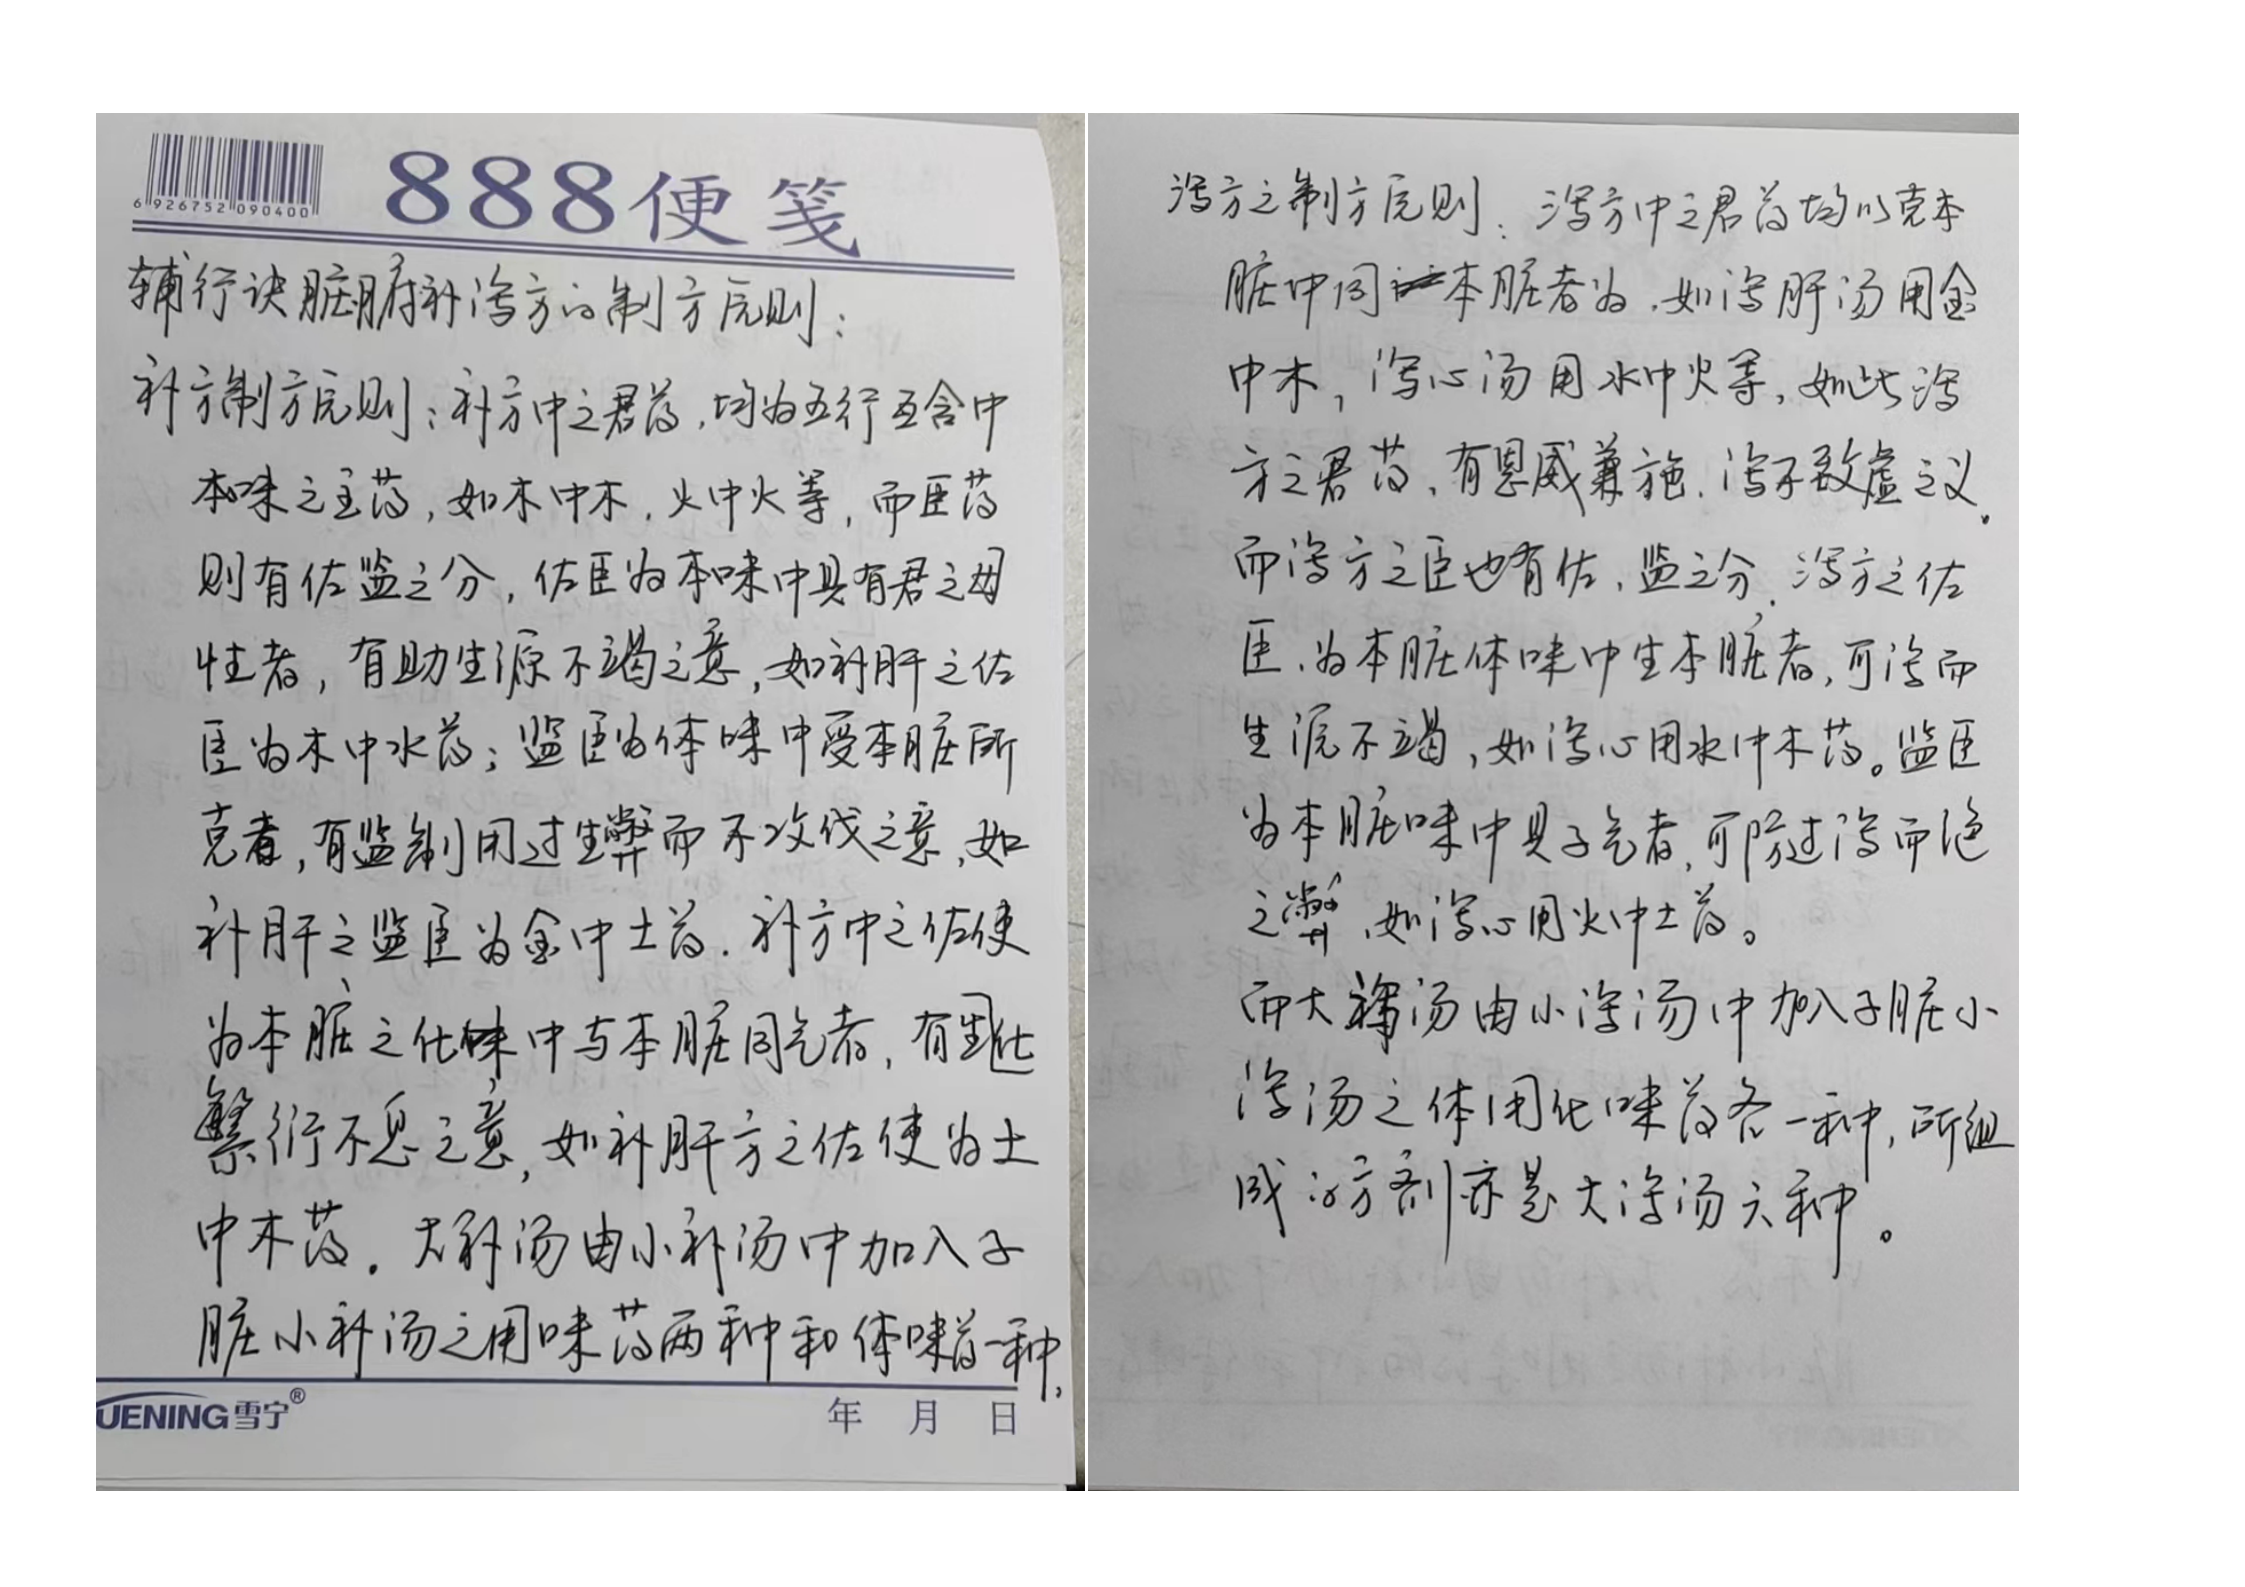 6 926752 090400
888便笺
辅行诀脏腑补泻方的制方原则：
补方制方原则：补方中之君药，均为五行互含中
本味之主药，如木中木，火中火等，而臣药
则有佐监之分，佐臣为本味中具有君之母
性者，有助生源不竭之意，如补肝之佐
臣为木中水药；监臣为体味中受本脏所
克者，有监制用过生弊而不攻伐之意，如
补肝之监臣为金中土药．补方中之佐使
为本脏之化味中与本脏同气者，有生化
繁衍不息之意，如补肝方之佐使为土
中木药．大补汤由小补汤中加入子
脏小补汤之用味药两种和体味药一种，
UENING雪宁®
年 月 日
泻方之制方原则：泻方中之君药均以克本
脏中同本脏者为．如泻肝汤用金
中木，泻心汤用水中火等，如此泻
方之君药，有恩威兼施．泻不致虚之义．
而泻方之臣也有佐、监之分．泻方之佐
臣、为本脏体味中生本脏者，可泻而
生源不竭，如泻心用水中木药。监臣
为本脏味中具子气者，可防过泻而绝
之弊、如泻心用火中土药。
而大泻汤由小泻汤中加入子脏小
泻汤之体用化味药各一种，所组
成的方剂亦是大泻汤六种。